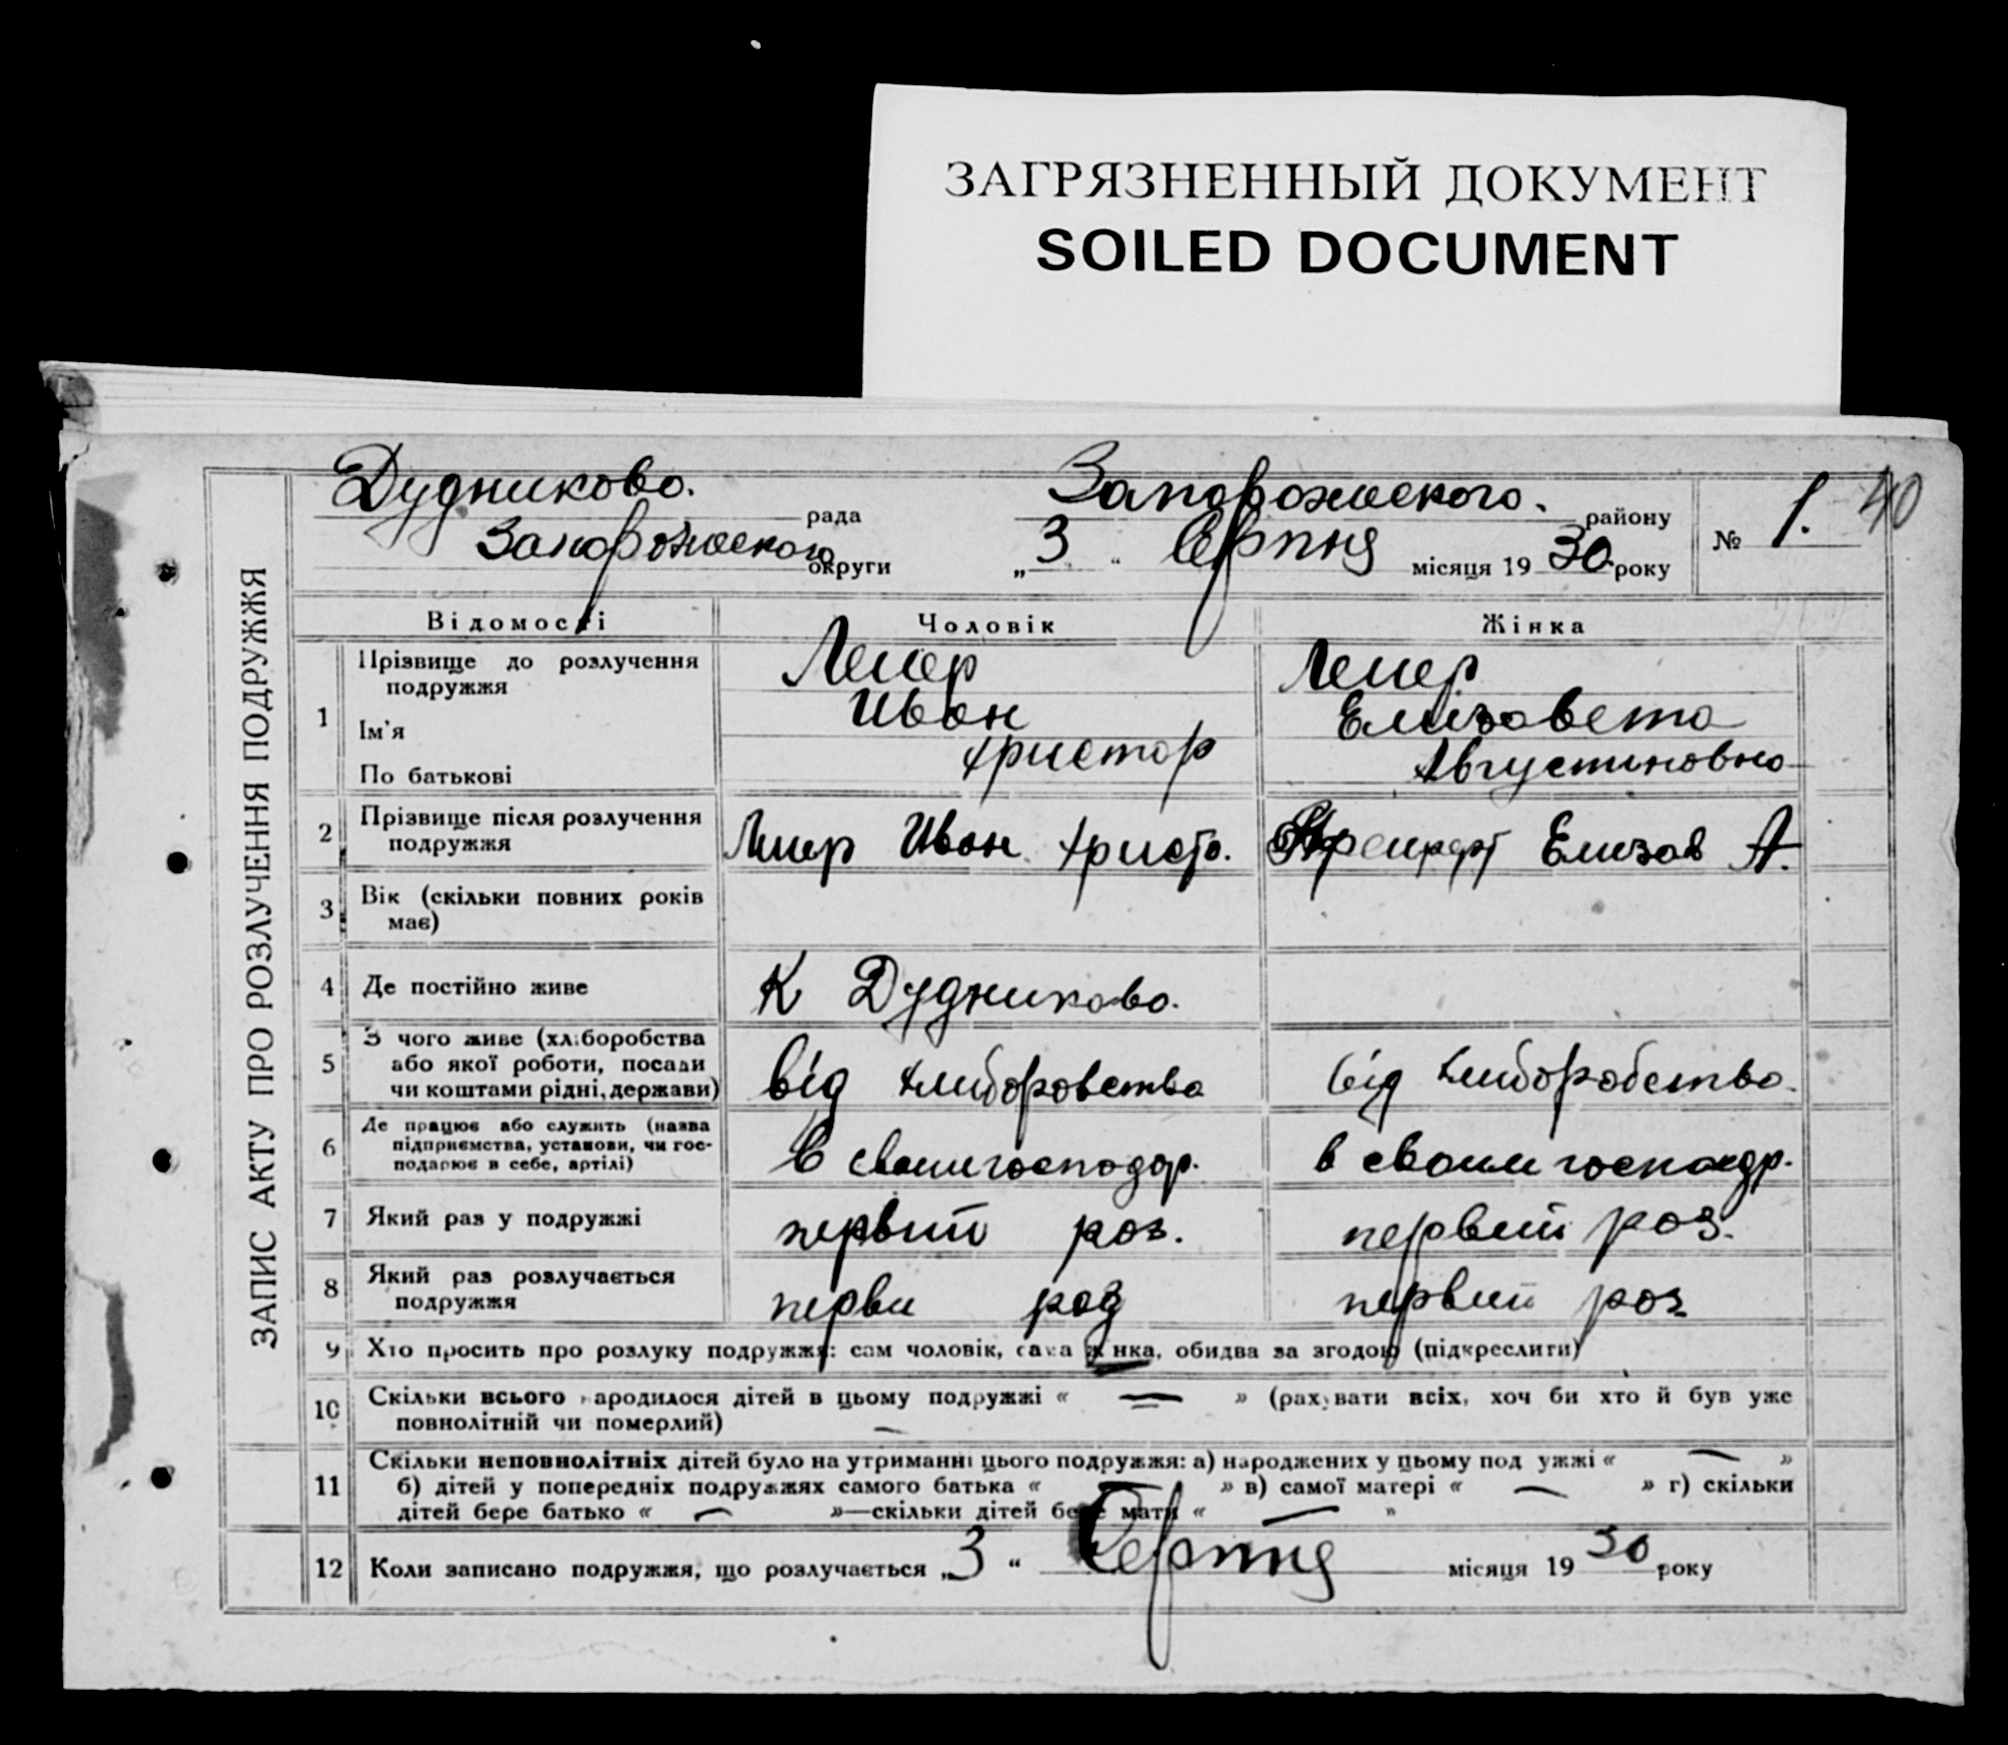 ЗАГРЯЗНЕННЫЙ ДОКУМЕНТ
SOILED DOCUMENT
Дудниково. рада
Запорожского. району
№ 1. 40
Запорожского округи
„3“ Серпня місяця 1930 року
ЗАПИС АКТУ ПРО РОЗЛУЧЕННЯ ПОДРУЖЖЯ
Відомості Чоловік Жінка
1 Прізвище до розлучення подружжя Лешер Лешер
Ім'я Иван Елизавета
По батькові Христор Августиновна
2 Прізвище після розлучення подружжя Лешер Иван Христо. Елизав А.
3 Вік (скільки повних років має)
4 Де постійно живе К Дудниково.
5 З чого живе (хліборобства або якої роботи, посади чи коштами рідні, держави) від хлиборовства від хлиборобства.
6 Де працює або служить (назва підприємства, установи, чи господарює в себе, артілі) в своим господар. в своим господр.
7 Який раз у подружжі первий раз. первий раз.
8 Який раз розлучається подружжя перви раз первий раз
9 Хто просить про розлуку подружжя: сам чоловік, сама жінка, обидва за згодою (підкреслити)
10 Скільки всього народилося дітей в цьому подружжі « — » (рахувати всіх, хоч би хто й був уже
повнолітній чи померлий) —
11 Скільки неповнолітніх дітей було на утриманні цього подружжя: а) народжених у цьому подружжі « — »
б) дітей у попередніх подружжях самого батька « — » в) самої матері « — » г) скільки
дітей бере батько « — »—скільки дітей бере мати « — »
12 Коли записано подружжя, що розлучається „3“ Серпня місяця 1930 року